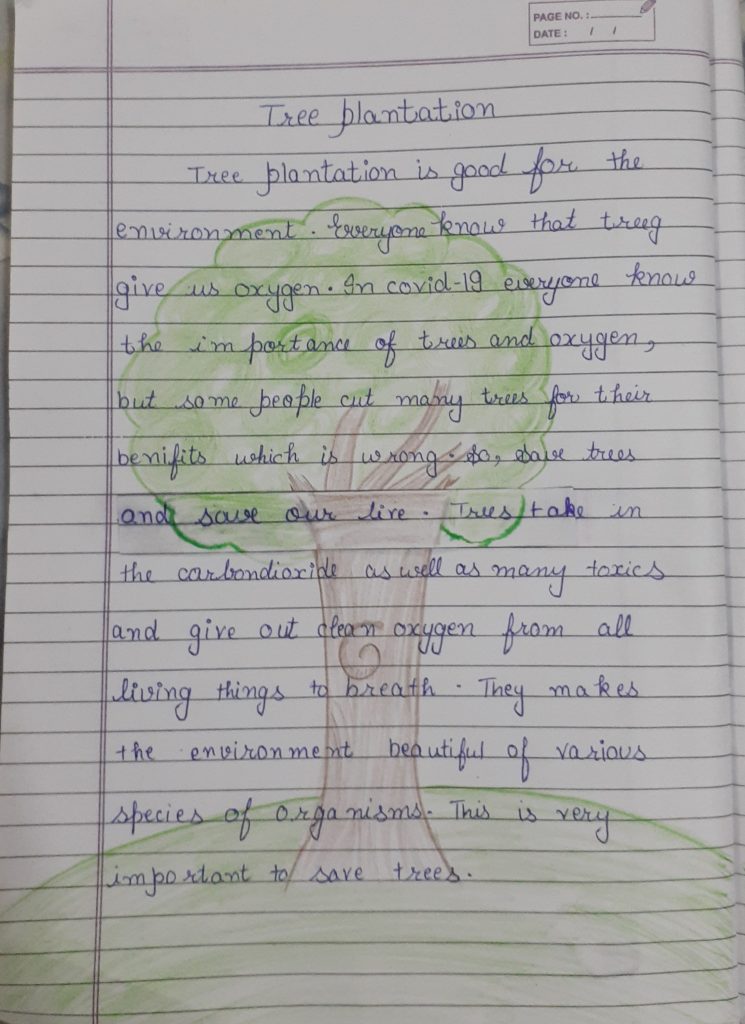 PAGE NO. :
DATE : / /
Tree plantation
Tree plantation is good for the
environment. Everyone know that treeg
give us oxygen. In covid-19 everyone know
the importance of trees and oxygen,
but some people cut many trees for their
benifits which is wrong. So, save trees
and save our live. Trees take in
the carbondioxide as well as many toxics
and give out clean oxygen from all
living things to breath. They makes
the environment beautiful of various
species of organisms. This is very
important to save trees.